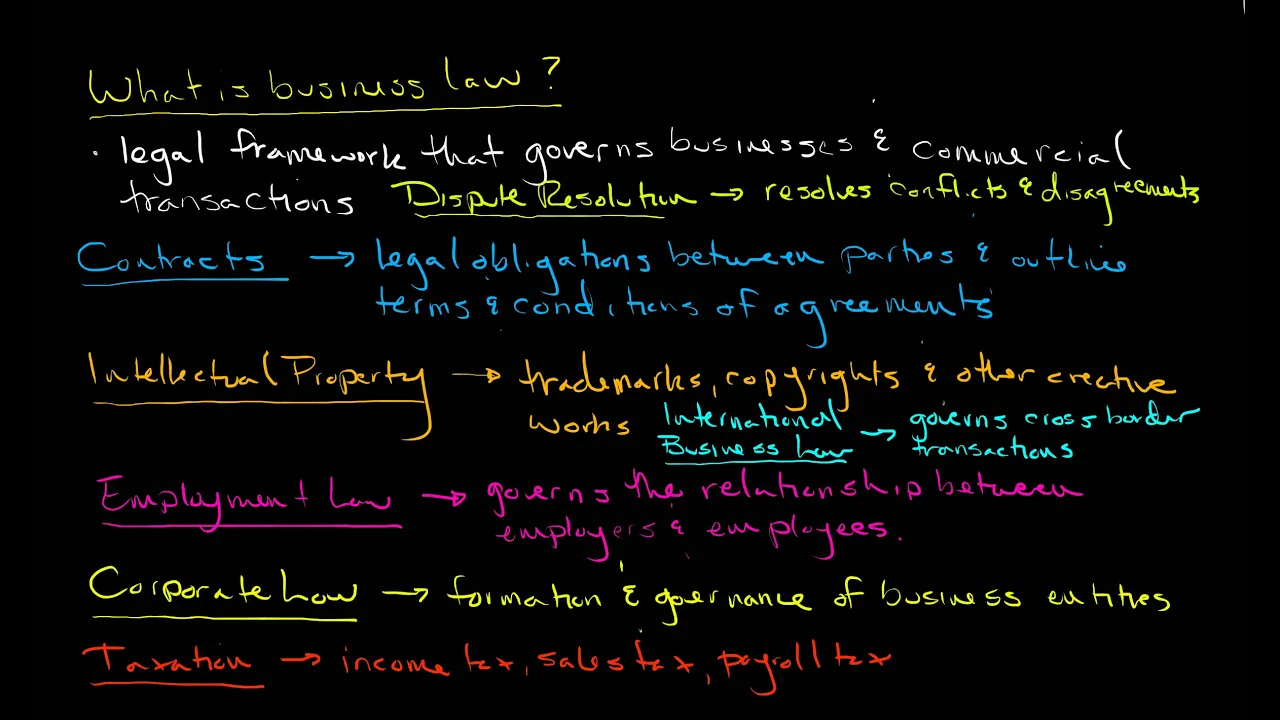 What is business law?
· legal framework that governs businesses & commercial
transactions Dispute Resolution → resolves conflicts & disagreements
Contracts → legal obligations between parties & outlines
terms & conditions of agreements
Intellectual Property → trademarks, copyrights & other creative
works International → governs cross border
Business Law transactions
Employment Law → governs the relationship between
employers & employees.
Corporate Law → formation & governance of business entities
Taxation → income tax, sales tax, payroll tax